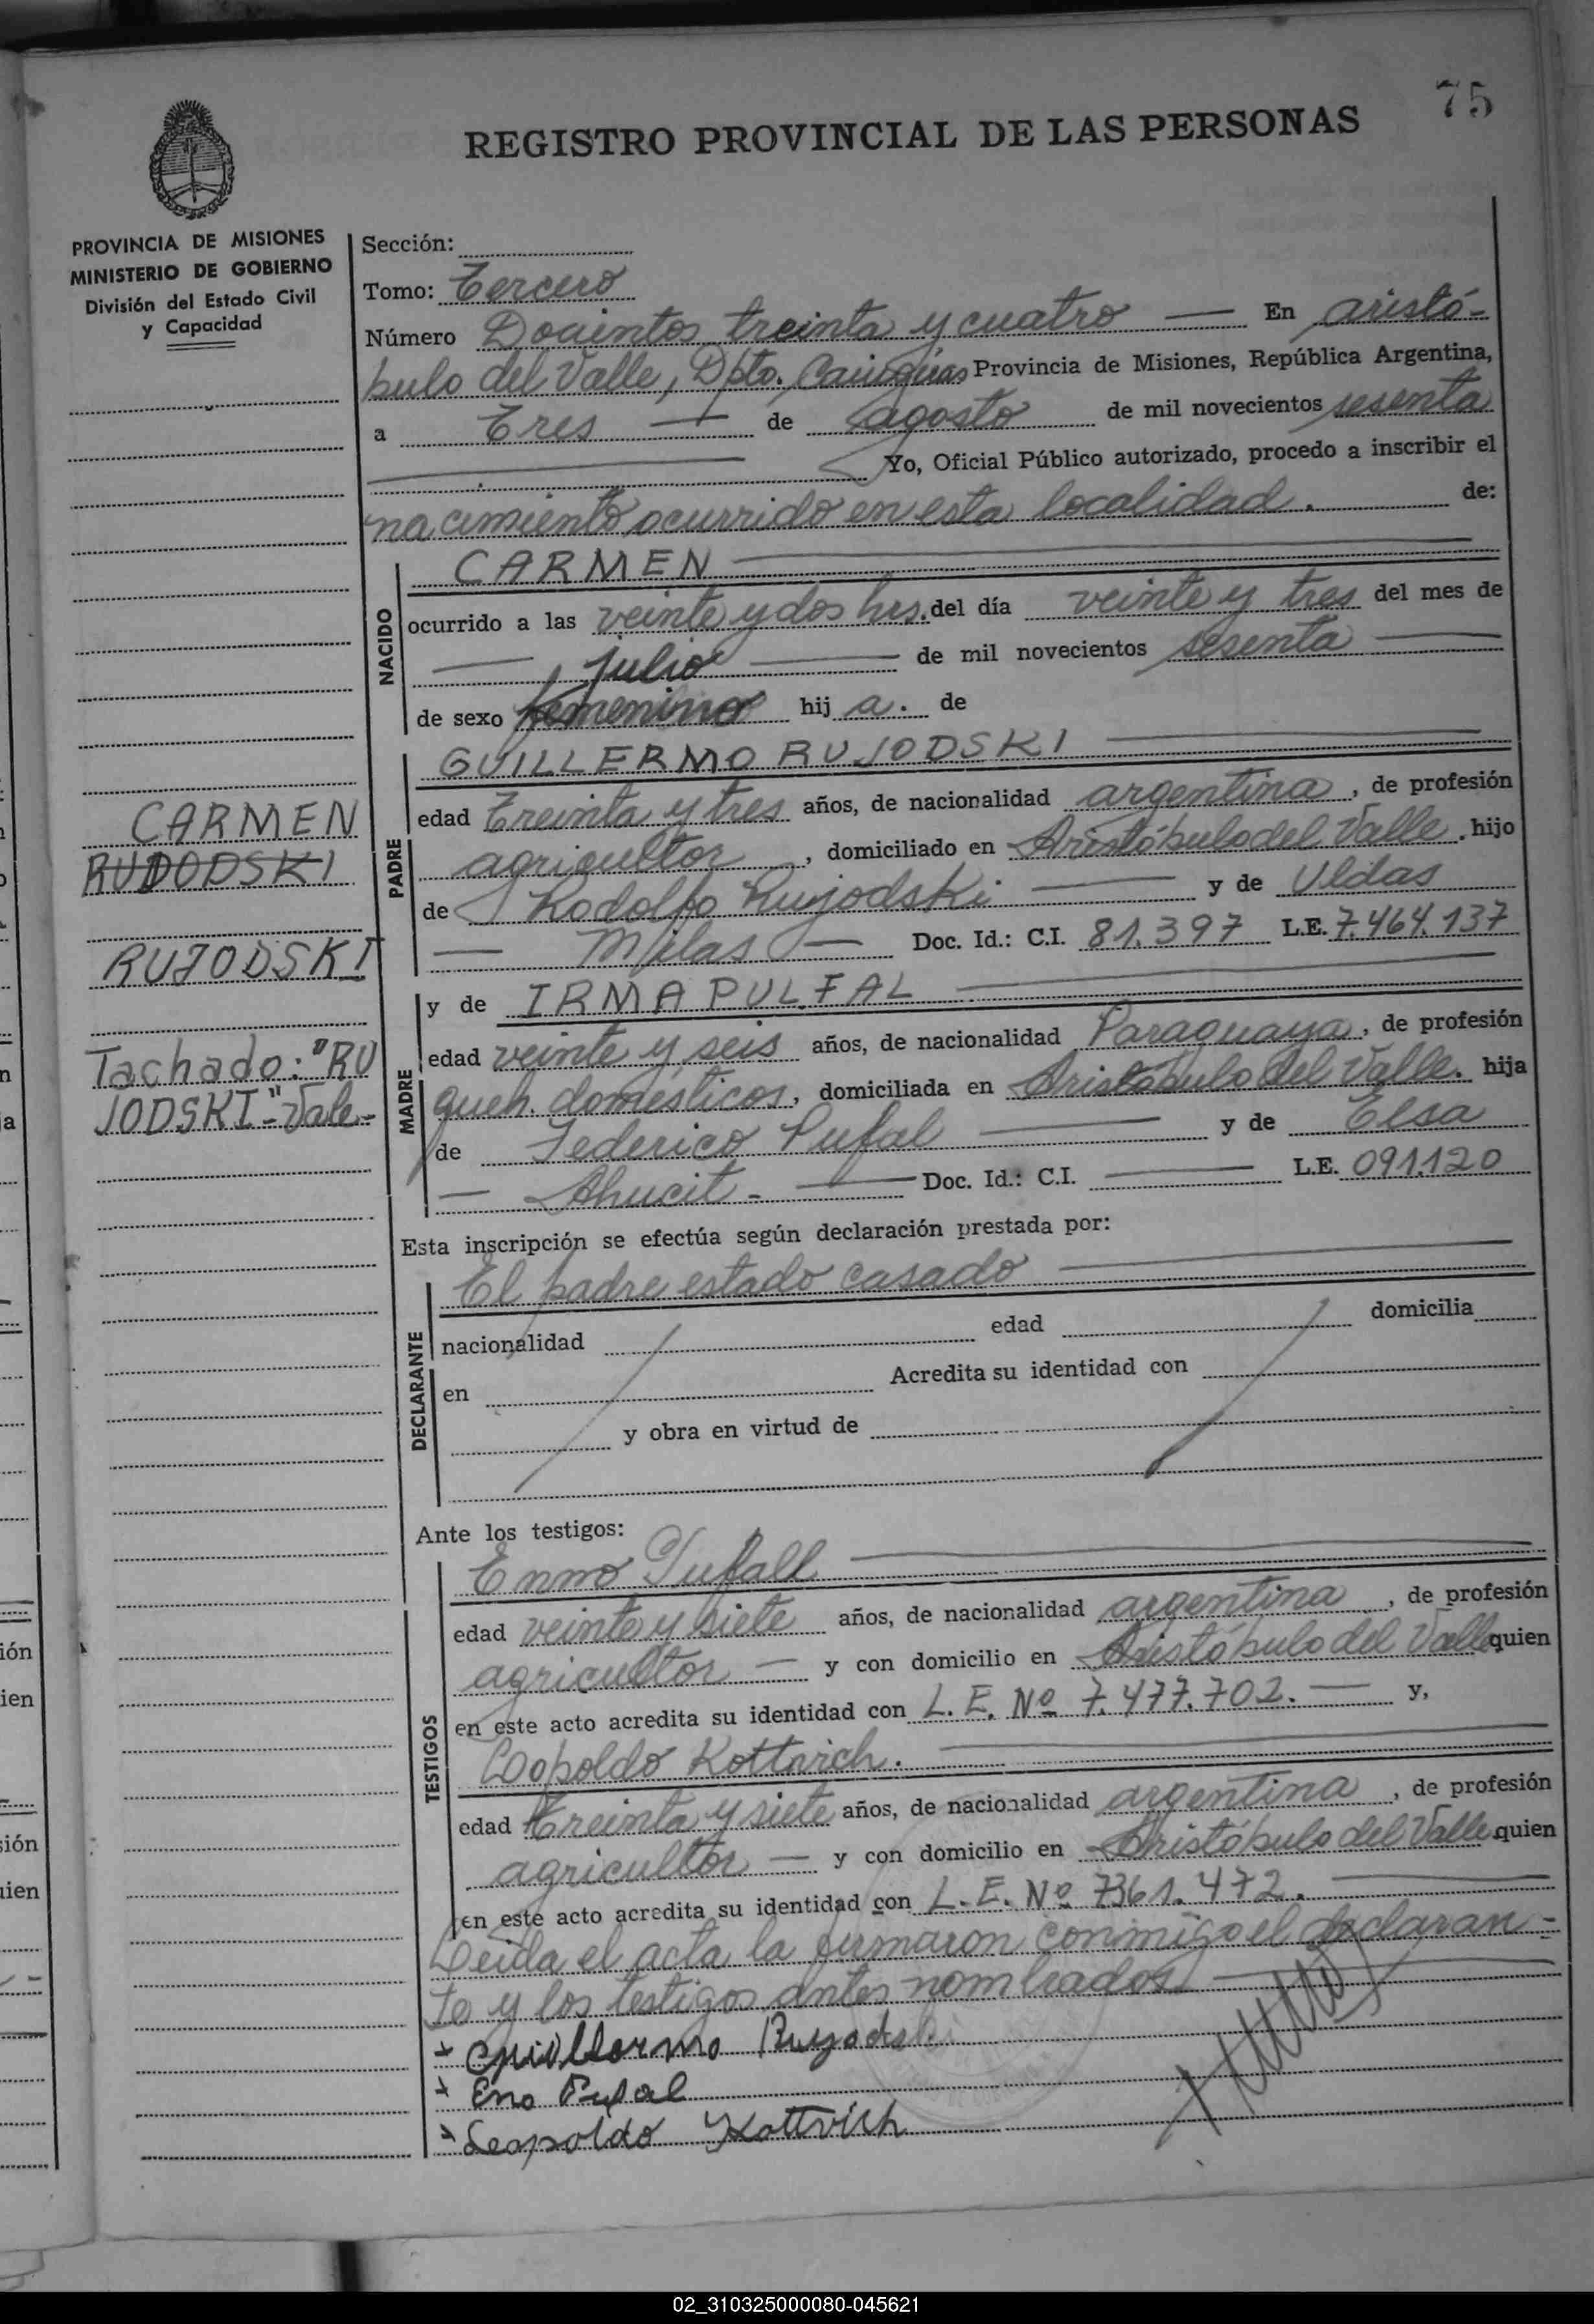 75
REGISTRO PROVINCIAL DE LAS PERSONAS
PROVINCIA DE MISIONES
MINISTERIO DE GOBIERNO
División del Estado Civil
y Capacidad
Sección:
Tomo: Tercero
Número Docientos treinta y cuatro — En aristó-
bulo del Valle, Dpto. Cainguas Provincia de Misiones, República Argentina,
a Tres — de agosto de mil novecientos sesenta
Yo, Oficial Público autorizado, procedo a inscribir el
nacimiento ocurrido en esta localidad. de:
NACIDO
CARMEN
ocurrido a las veinte y dos hrs. del día veinte y tres del mes de
— Julio — de mil novecientos sesenta —
de sexo femenino hij a. de
PADRE
GUILLERMO RUJODSKI
edad Treinta y tres años, de nacionalidad argentina, de profesión
agricultor, domiciliado en Aristóbulo del Valle, hijo
de Rodolfo Rujodski — y de Uldas
— Milas — Doc. Id.: C.I. 81.397 L.E. 7.464.137
CARMEN
RUDODSKI
RUJODSKI
Tachado: "RU
JODSKI"- Vale-
MADRE
y de IRMA PULFAL
edad veinte y seis años, de nacionalidad Paraguaya, de profesión
queh. domésticos, domiciliada en Aristóbulo del Valle. hija
de Federico Pufal — y de Elsa
— Doc. Id.: C.I. — L.E. 091.120
Esta inscripción se efectúa según declaración prestada por:
DECLARANTE
El padre estado casado
nacionalidad edad domicilia
en Acredita su identidad con
y obra en virtud de
Ante los testigos:
TESTIGOS
Enno Pufall
edad veinte y siete años, de nacionalidad argentina, de profesión
agricultor — y con domicilio en Aristóbulo del Valle quien
en este acto acredita su identidad con L. E. Nº 7.477.702. — y,
Leopoldo Kottwich.
edad Treinta y siete años, de nacionalidad argentina, de profesión
agricultor — y con domicilio en Aristóbulo del Valle quien
en este acto acredita su identidad con L. E. Nº 7361.472.
Leida el acta la firmaron conmigo el declaran-
te y los testigos antes nombrados.
x Guillermo Ruyodski
x Eno Pufal
x Leopoldo Kottvich
02_310325000080-045621